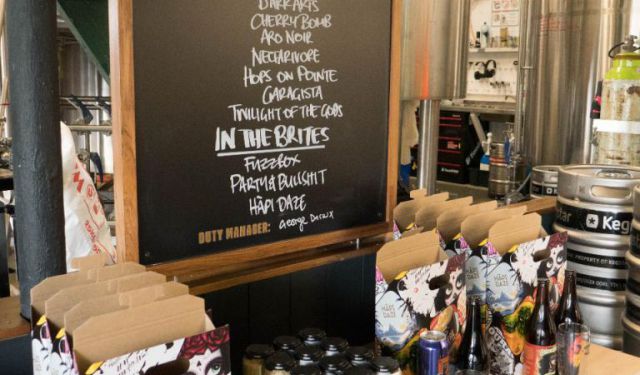 DARK ARTS
CHERRY BOMB
ARO NOIR
NECTARIVORE
HOPS ON POINTE
GARAGISTA
TWILIGHT OF THE GODS
IN THE BRITES
FUZZBOX
PARTY & BULLSHIT
HĀPI DAZE
DUTY MANAGER:
HĀPI
DAZE
Keg
star
Keg
PROPERTY OF KEG